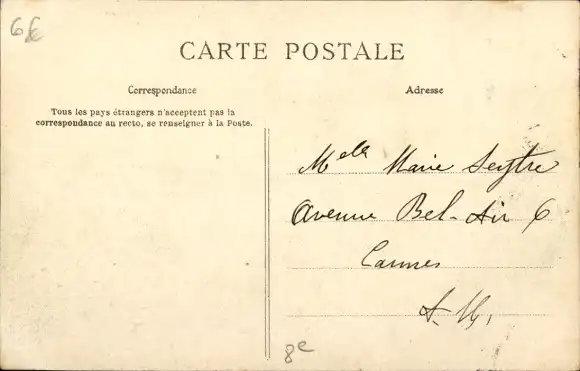 6€
CARTE POSTALE
Correspondance
Adresse
Tous les pays étrangers n'acceptent pas la
correspondance au recto, se renseigner à la Poste.
Melle Marie Seytre
Avenue Bel-Air 6
Cannes
A. M.
8e